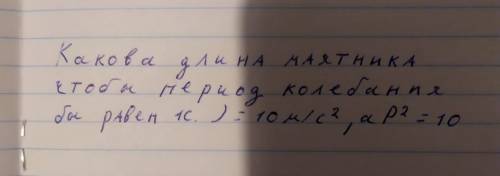 Какова длина маятника
чтобы период колебания
бы равен 1с. )=10м/с², а P²=10